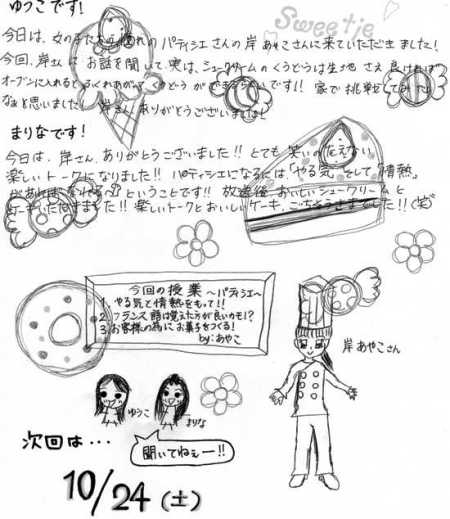 ゆっこです!
Sweetie
今日は、女の子たちの憧れのパティシエさんの岸あやこさんに来ていただきました!
今回、岸さんにお話を聞いて、実は、シュークリームのくうどうは生地さえ良ければ
オーブンに入れるとふくれあがってくうどうができるらしいです!!家で挑戦してみたい
なぁと思いました!岸さん、ありがとうございました!
まりなです!
今日は、岸さん、ありがとうございました!!とても笑いの花えない
楽しいトークになりました!!パティシエになるには「やる気」そして「情熱」
があればなれるの ということです!!放送後、おいしいシュークリームと
ケーキいただきました!!楽しいトークとおいしいケーキ、ごちそうさまでした!!(笑)
今回の授業〜パティシエ〜
1. やる気で情熱をもって!!
2. フランス語は覚えた方が良いかも!?
3. お客様の為にお菓子をつくる!
by:あやこ
岸あやこさん
ゆうこ
まりな
次回は・・・
聞いてねぇー!!
10/24(土)